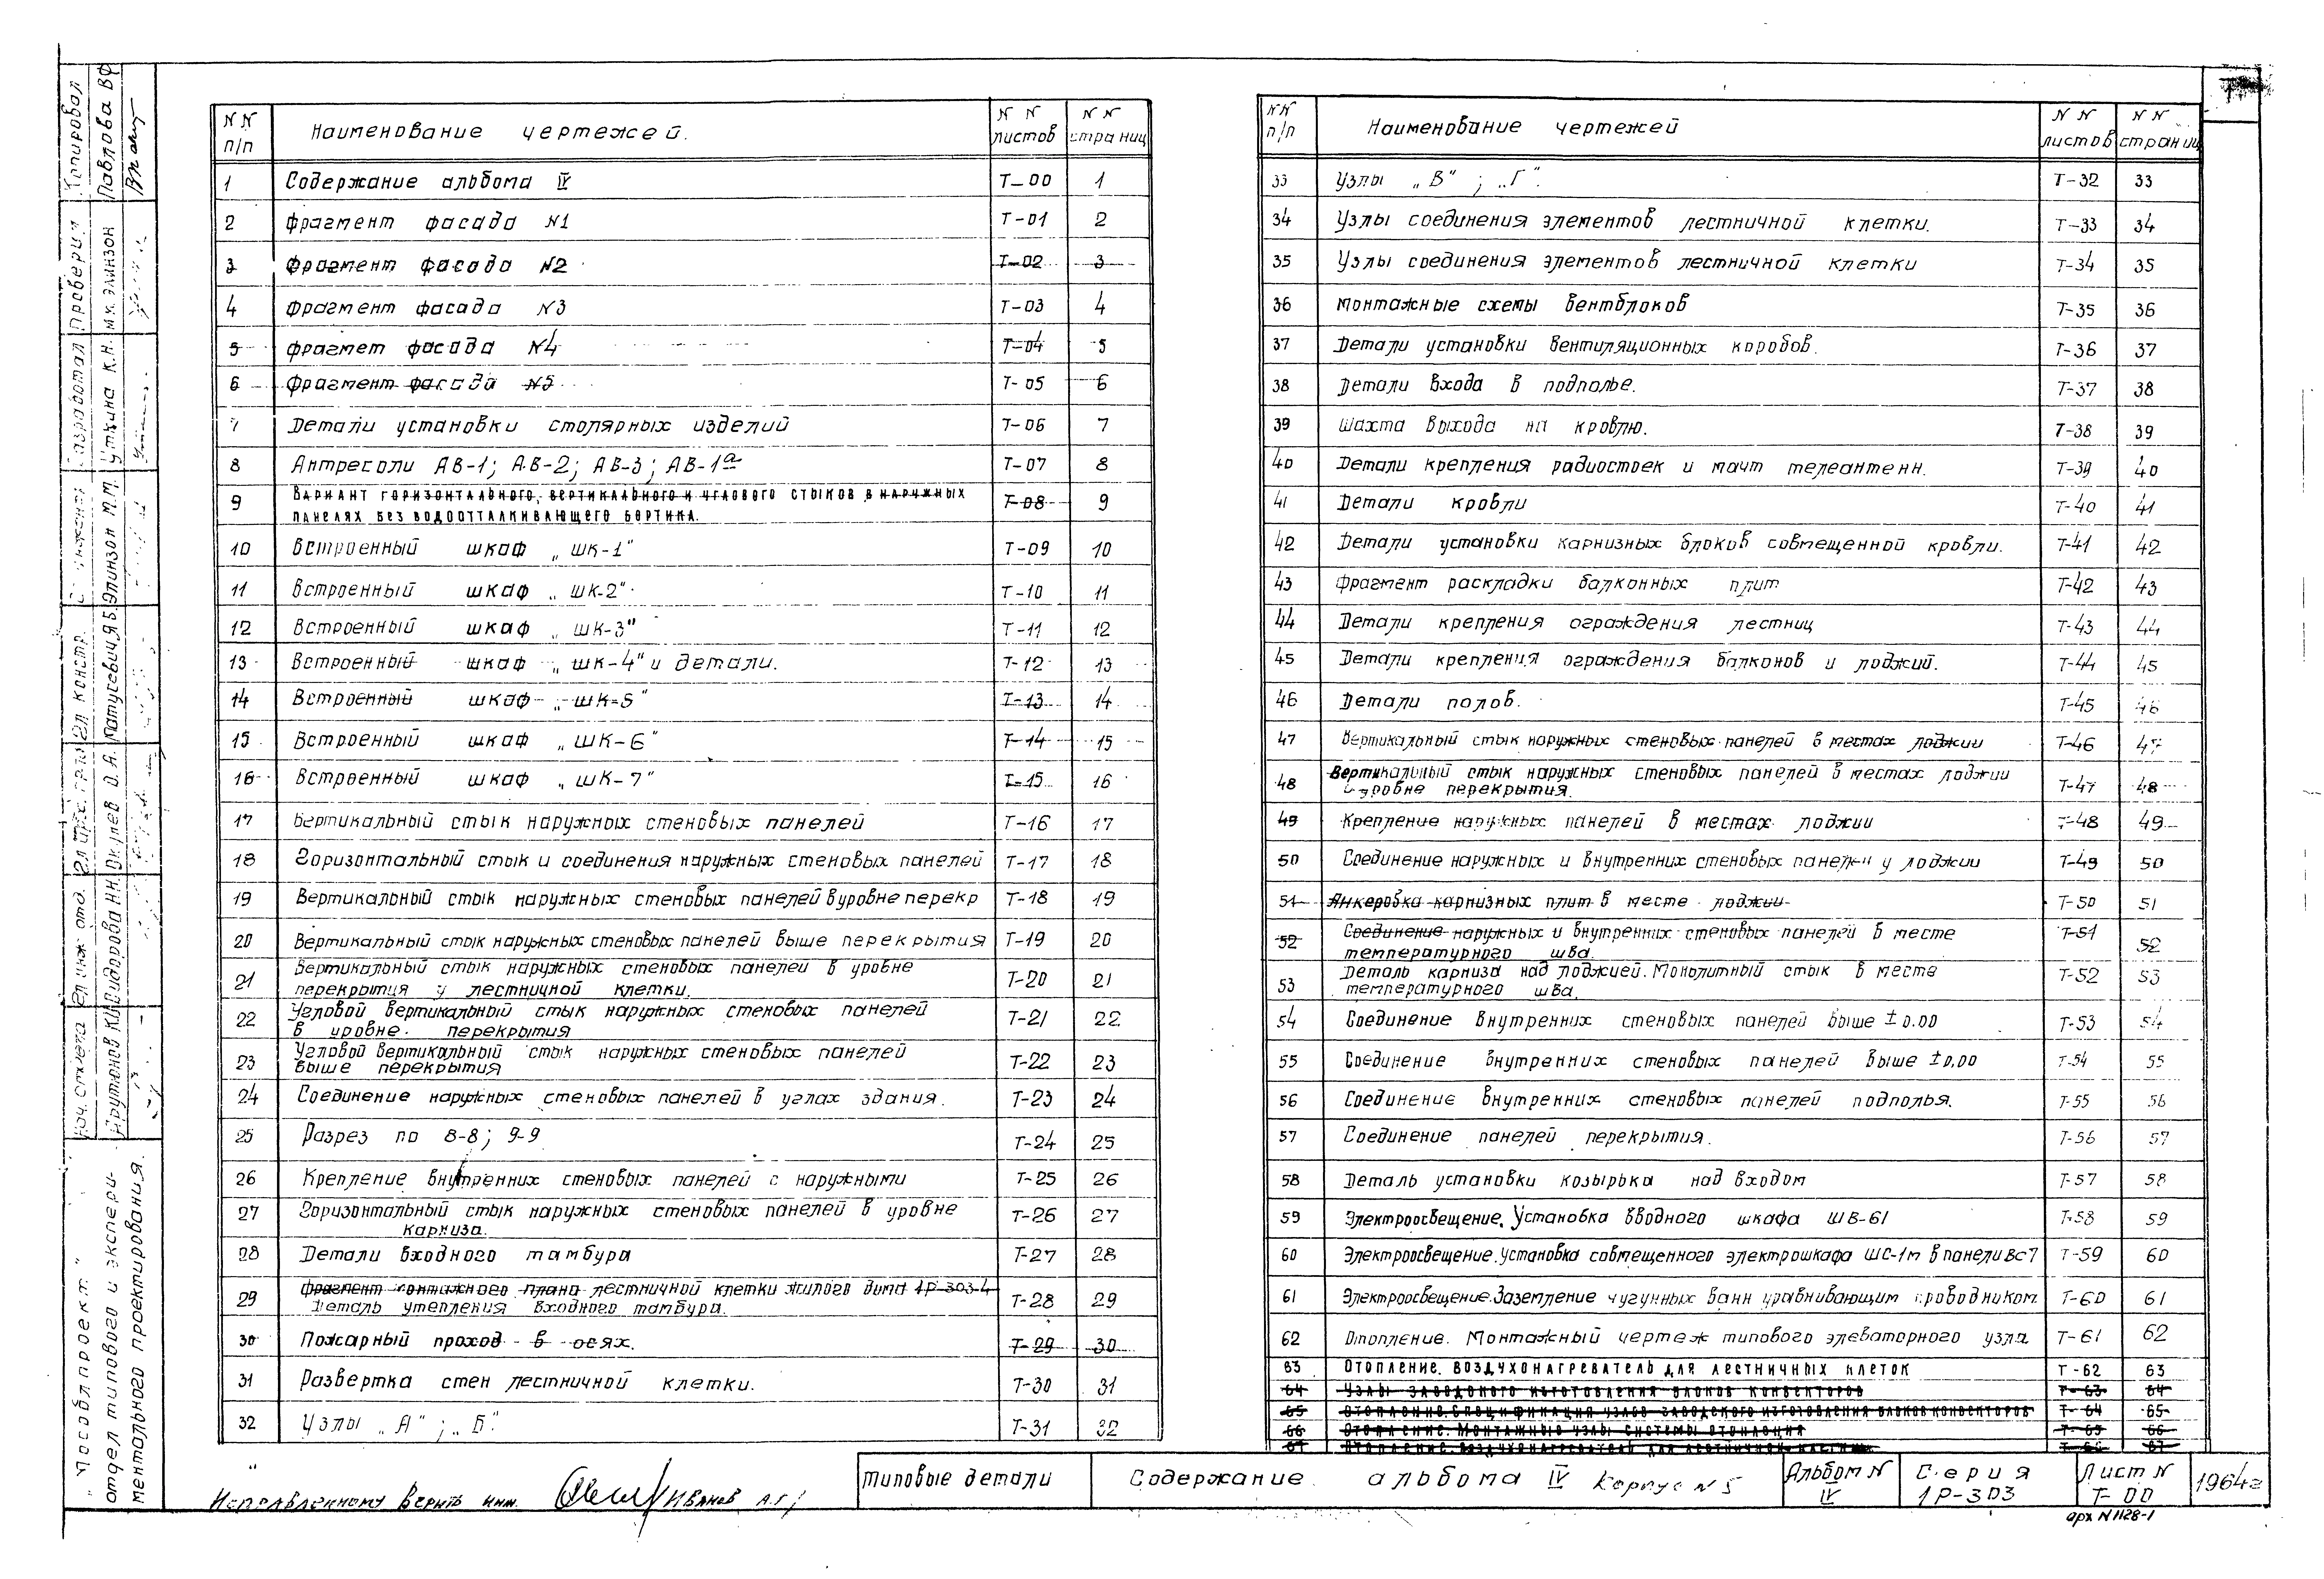 NN п/п Наименование чертежей. NN листов NN страниц
1 Содержание альбома IV Т-00 1
2 Фрагмент фасада N1 Т-01 2
3 Фрагмент фасада N2 Т-02 3
4 Фрагмент фасада N3 Т-03 4
5 Фрагмет фасада N4 Т-04 5
6 Фрагмент фасада N5 Т-05 6
7 Детали установки столярных изделий Т-06 7
8 Антресоли АВ-1; АВ-2; АВ-3; АВ-1а Т-07 8
9 Вариант горизонтального, вертикального и углового стыков в наружных
панелях без водоотталкивающего бортика. Т-08 9
10 Встроенный шкаф „ШК-1" Т-09 10
11 Встроенный шкаф „ШК-2" Т-10 11
12 Встроенный шкаф „ШК-3" Т-11 12
13 Встроенный шкаф „ШК-4" и детали. Т-12 13
14 Встроенный шкаф „ШК-5" Т-13 14
15 Встроенный шкаф „ШК-6" Т-14 15
16 Встроенный шкаф „ШК-7" Т-15 16
17 Вертикальный стык наружных стеновых панелей Т-16 17
18 Горизонтальный стык и соединения наружных стеновых панелей Т-17 18
19 Вертикальный стык наружных стеновых панелей в уровне перекр Т-18 19
20 Вертикальный стык наружных стеновых панелей выше перекрытия Т-19 20
21 Вертикальный стык наружных стеновых панелей в уровне
перекрытия у лестничной клетки. Т-20 21
22 Угловой вертикальный стык наружных стеновых панелей
в уровне перекрытия Т-21 22
23 Угловой вертикальный стык наружных стеновых панелей
выше перекрытия Т-22 23
24 Соединение наружных стеновых панелей в углах здания. Т-23 24
25 Разрез по 8-8; 9-9 Т-24 25
26 Крепление внутренних стеновых панелей с наружными Т-25 26
27 Горизонтальный стык наружных стеновых панелей в уровне
карниза. Т-26 27
28 Детали входного тамбура Т-27 28
29 Фрагмент монтажного плана лестничной клетки жилого дома 1Р-303-4
Деталь утепления входного тамбура. Т-28 29
30 Пожарный проход в осях. Т-29 30
31 Развертка стен лестничной клетки. Т-30 31
32 Узлы „А"; „Б". Т-31 32
NN п/п Наименование чертежей NN листов NN страниц
33 Узлы „В"; „Г". Т-32 33
34 Узлы соединения элементов лестничной клетки. Т-33 34
35 Узлы соединения элементов лестничной клетки Т-34 35
36 Монтажные схемы вентблоков Т-35 36
37 Детали установки вентиляционных коробов. Т-36 37
38 Детали входа в подполье. Т-37 38
39 Шахта выхода на кровлю. Т-38 39
40 Детали крепления радиостоек и мачт телеантенн. Т-39 40
41 Детали кровли Т-40 41
42 Детали установки карнизных блоков совмещенной кровли. Т-41 42
43 Фрагмент раскладки балконных плит Т-42 43
44 Детали крепления ограждения лестниц Т-43 44
45 Детали крепления ограждения балконов и лоджий. Т-44 45
46 Детали полов. Т-45 46
47 Вертикальный стык наружных стеновых панелей в местах лоджии Т-46 47
48 Вертикальный стык наружных стеновых панелей в местах лоджии
в уровне перекрытия. Т-47 48
49 Крепление наружных панелей в местах лоджии Т-48 49
50 Соединение наружных и внутренних стеновых панелей у лоджии Т-49 50
51 Анкеровка карнизных плит в месте лоджии Т-50 51
52 Соединение наружных и внутренних стеновых панелей в месте
температурного шва. Т-51 52
53 Деталь карниза над лоджией. Монолитный стык в месте
температурного шва. Т-52 53
54 Соединение внутренних стеновых панелей выше ±0.00 Т-53 54
55 Соединение внутренних стеновых панелей выше ±0,00 Т-54 55
56 Соединение внутренних стеновых панелей подполья. Т-55 56
57 Соединение панелей перекрытия. Т-56 57
58 Деталь установки козырька над входом Т-57 58
59 Электроосвещение. Установка вводного шкафа ШВ-61 Т-58 59
60 Электроосвещение. Установка совмещенного электрошкафа ШС-1м в панели Вс7 Т-59 60
61 Электроосвещение. Заземление чугунных ванн уравнивающим проводником Т-60 61
62 Отопление. Монтажный чертеж типового элеваторного узла Т-61 62
63 Отопление. Воздухонагреватель для лестничных клеток Т-62 63
64 Узлы заводского изготовления блоков конвекторов Т-63 64
65 Отопление. Спецификация узлов заводского изготовления блоков конвекторов Т-64 65
66 Отопление. Монтажные узлы системы отопления Т-65 66
67 Отопление. Воздухонагреватели для лестничной клетки Т-66 67
Копировал Павлова ВФ
Проверил М.К. Элинзон
Разработал Уткина К.Н.
Элинзон М.М.
Гл констр. Матусевич Я.Б.
О.А.
Гл инж отд. Сидорова Н.Н.
Нач. отдела Арутюнов К.
"Мособлпроект"
отдел типового и экспери-
ментального проектирования.
Исправленному верить инж. /Иванов А.Г./
Типовые детали Содержание альбома IV Корпус N 5 Альбом N IV Серия 1Р-303 Лист N Т-00 1964г
арх N 1128-1